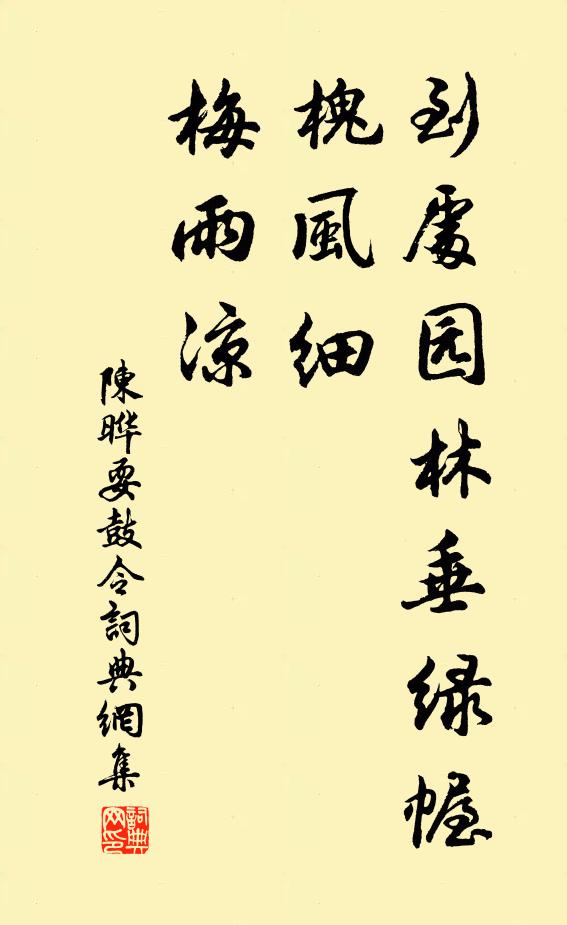 到處园林垂绿幄
槐風细
梅雨涼
陳晔耍鼓令詞典網集
詞典网印